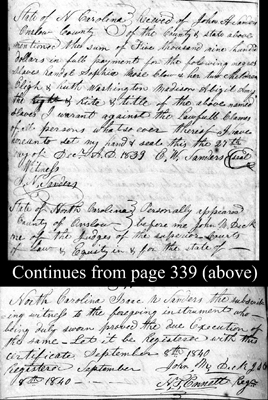 State of N Carolina } Received of John A
Onslow County } of the County & state above
mentioned the sum of Five thousand nine hund
dollars in full payment for the following negroes
Slaves Sophia Rose Clow & her two children
Elijh & Ruth Washington Madison Abigil Amy
the right & title of the above named
Slaves I warrant against the lawfull claims
of all persons whatsoever thereof I have
set my hand & seale this the 27th
day of Decr A.D. 1839 Seal
Witness
Sanders
State of North Carolina } Personally appeared
County of Onslow } before me John M Dick
me of the Judges of the superior Courts
of Law & Equity in & for the state of
Continues from page 339 (above)
North Carolina Isaac N Sanders the subscrib
ing witness to the foregoing instrument who
being duly sworn proved the due execution of
the same – Let it be Registered with this
certificate September 8th 1840
Registered September John M Dick
18th 1840